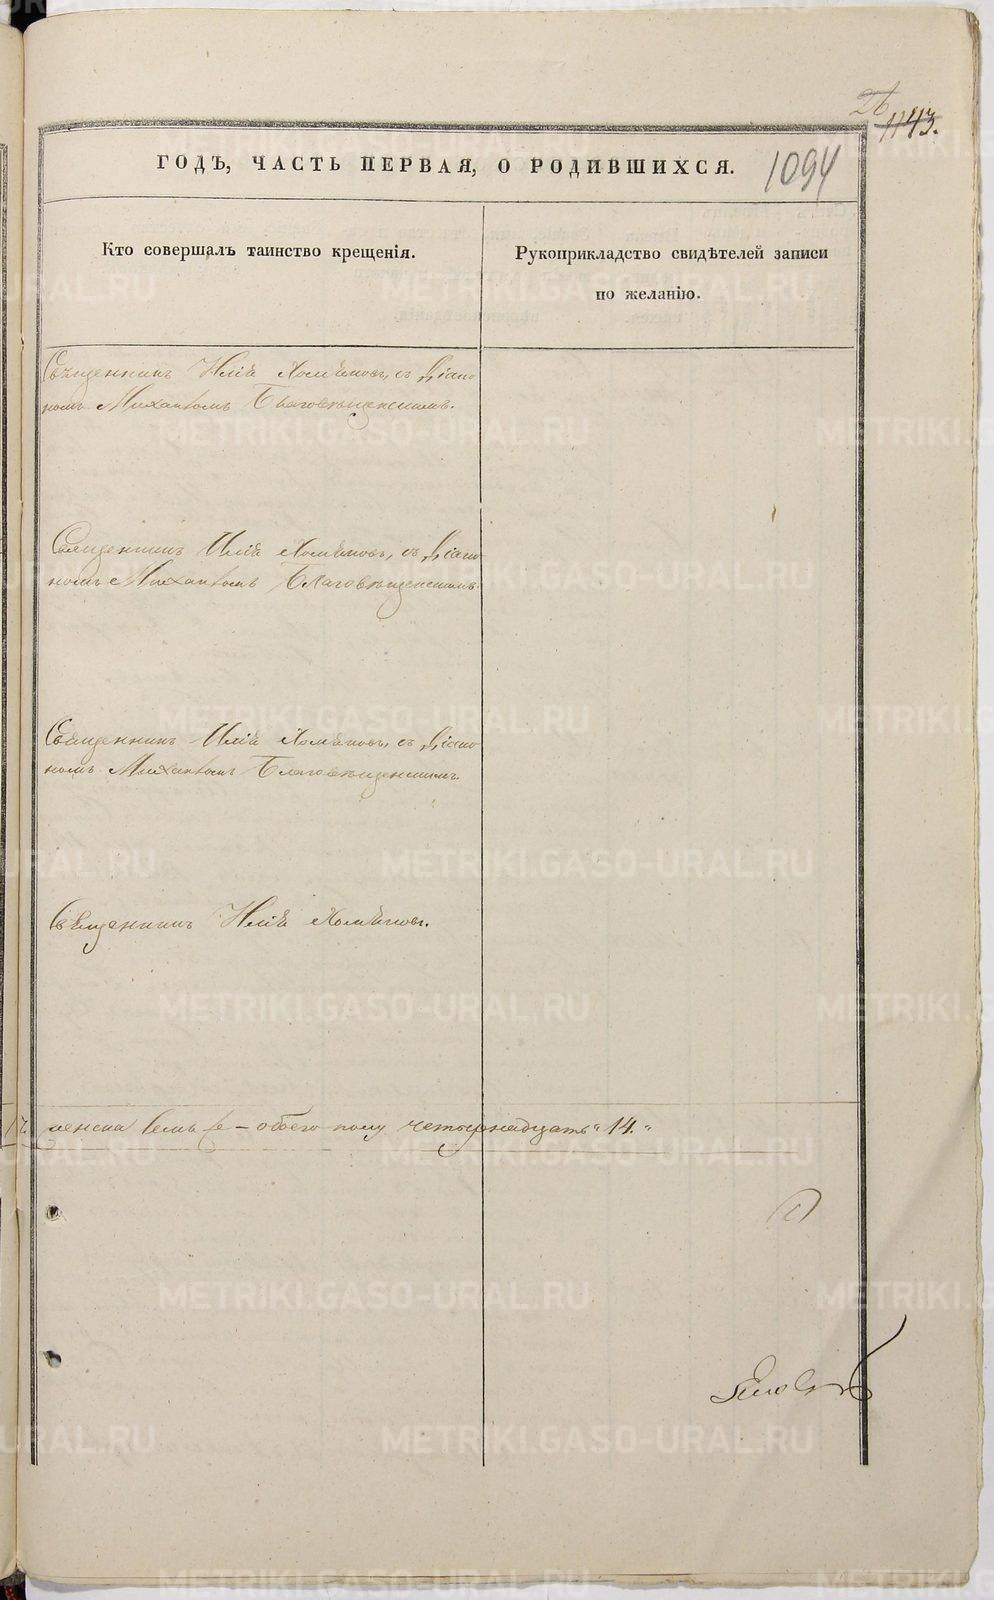 26
1143.
ГОДЪ, ЧАСТЬ ПЕРВАЯ, О РОДИВШИХСЯ.
1094
Кто совершалъ таинство крещенія.
Рукоприкладство свидѣтелей записи
по желанію.
Священникъ Илій Хомяковъ, съ Діако-
номъ Михаиломъ Благовѣщенскимъ.
Священникъ Илій Хомяковъ, съ Діако-
номъ Михаиломъ Благовѣщенскимъ.
Священникъ Илій Хомяковъ, съ Діако-
номъ Михаиломъ Благовѣщенскимъ.
Священникъ Илій Хомяковъ.
женска семь – обоего полу четырнадцать "14."
METRIKI.GASO-URAL.RU